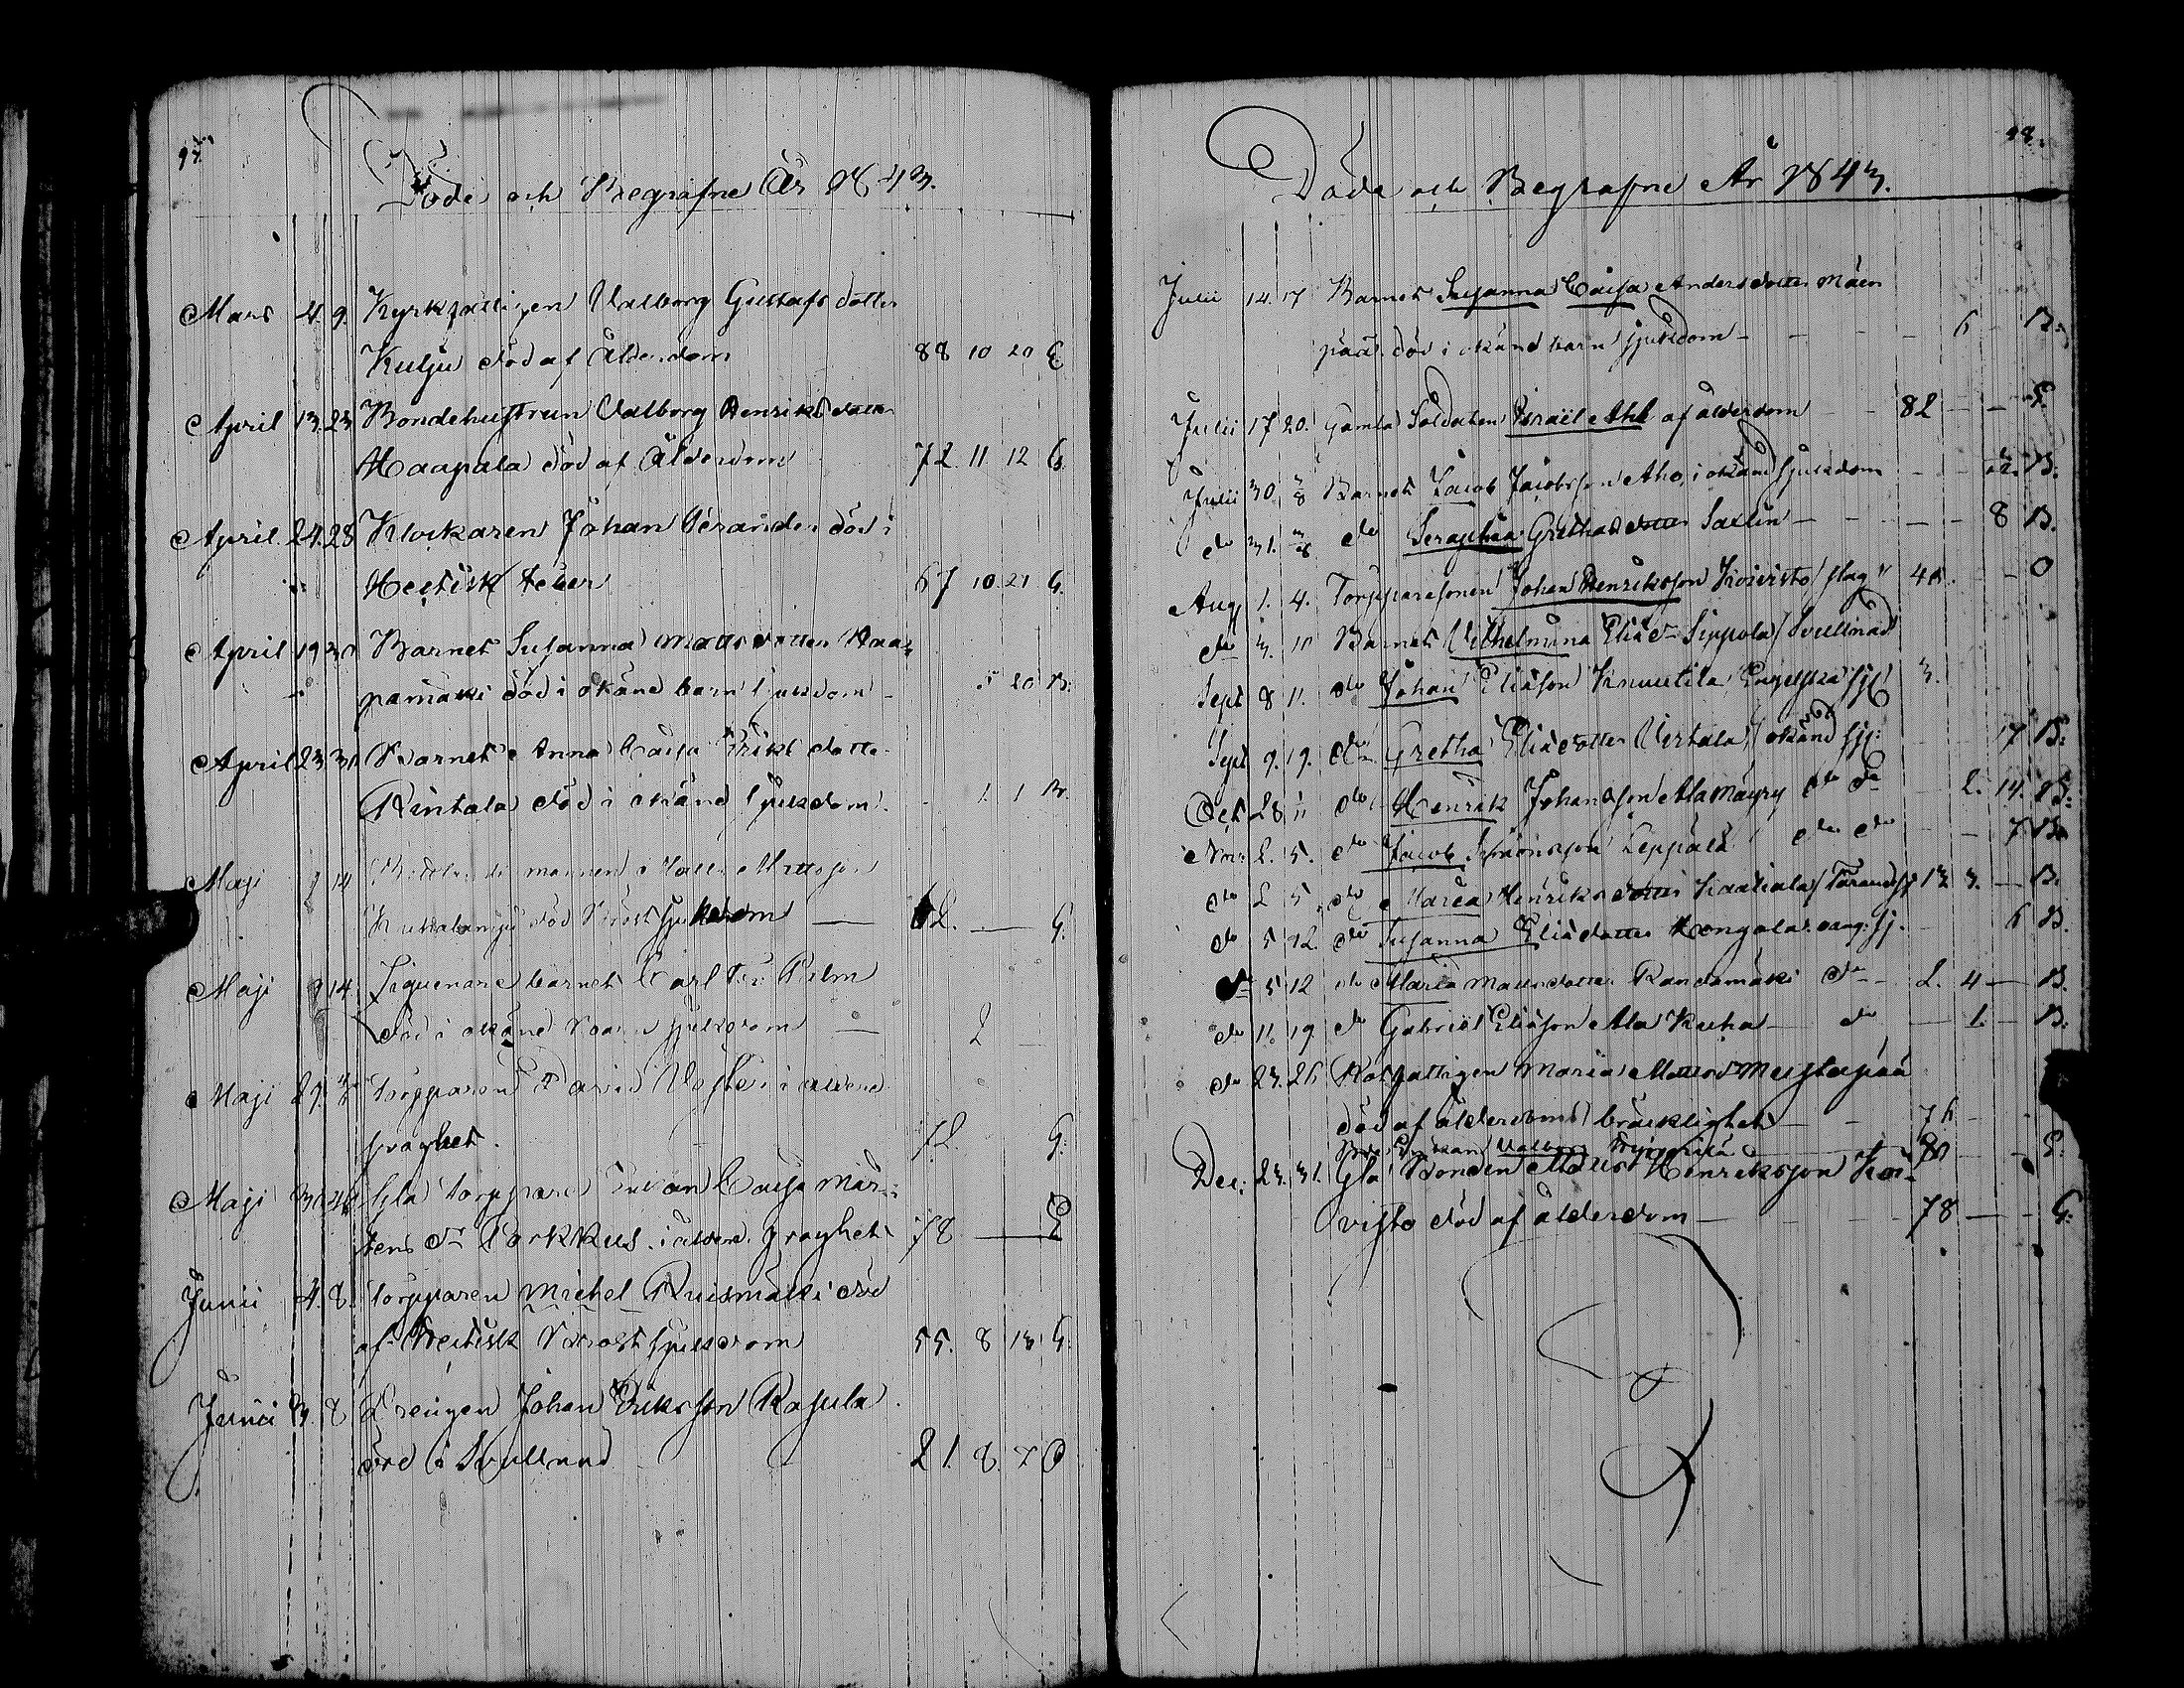 97.
Döde och Begrafne År 1843.
Mars 4. 9. Kyrkfattigen Valborg Gustafs dotter
Kulju död af Ålderdom 88 10 20 E.
April 13. 23 Bondehustrun Valborg Henriks dotter
Haapala död af Ålderdom 72. 11 12 G.
April 24. 28 Klockaren Johan Verander död i
Hectisk feber 67 10. 21 G.
April 19 30 Barnet Susanna Matts dotter Haa-
pamäki död i okänd barn sjukdom - 5 20 B.
April 23 30 Barnet Anna Caisa Eriks dotter
Rintala död i okänd sjukdom. - 1. 1 B.
Maji 14 mannen Matts Mattsson
död Bröst sjukdom — 62. — G.
Maji 9 14. Zigenare barnet Carl Palm
död i okänd barn sjukdom — 2
Maji 29. Torpparen David i ålderd.
praghet. 72. G.
Maji 31 Gla Torppare Enkan Caisa Mår-
tens dr Porkkus i ålderd. praghet 78 — E
Junii 4. 8. Torpparen Michel Ruismäki död
af Hectisk Bröst sjukdom 55. 8 13 G.
Junii 3. 8 Drengen Johan Eriksson Rasula
död i Kullnad 21. 8. 7 O
98.
Döde och Begrafne År 1843.
Julii 14. 17 Barnet Susanna Caisa Anders dotter Mäen
pää död i okänd barn sjukdom - - - - 6 - B.
Julii 17 20. Gamla Soldaten Israel Ahl af ålderdom - - 82 - - E.
Julii 30 Barnet Jacob Jacobsson Aho, i okänd sjukdom - - B.
do 31. do Seraphia Gretha dotter Saxlin - - - - 8 B.
Aug 1. 4. Torpparesonen Johan Henriksson Koivisto / slag 46. - O
do 3. 10 Barnet Vilhelmina Eliæ dr Sippola / Svullnad
Sept 8 11. do Johan Eliasson Knuutila / Engelska sj 3.
Sept 9. 19. do Gretha Eliædotter Virtala / okänd sj: 17 B.
Oct 28 do Henrik Johansson Alamäyry do do - 2. 14. B.
Nov: 2. 5. do Jacob Simonsson Leppälä do do - - 7 B.
do 2 5. do Maria Henriks dotter Kaakala / 13 3. — B.
do 5 12. do Susanna Eliædotter Kongola sj. - 6 B.
do 5 12 do Maria Matts dotter Randamäki do - 2. 4 — B.
do 11. 19. do Gabriel Eliasson Ala Kuha — do — 1. - B.
do 23. 26 Rotfattigen Maria Mattsdr Mustapää
död af ålderdoms bräcklighet - - 76 -
Enkan Valborg
Dec: 23. 31. Gla Bonden Matts Henriksson Koi-
visto död af ålderdom — - - - 78 — - G.